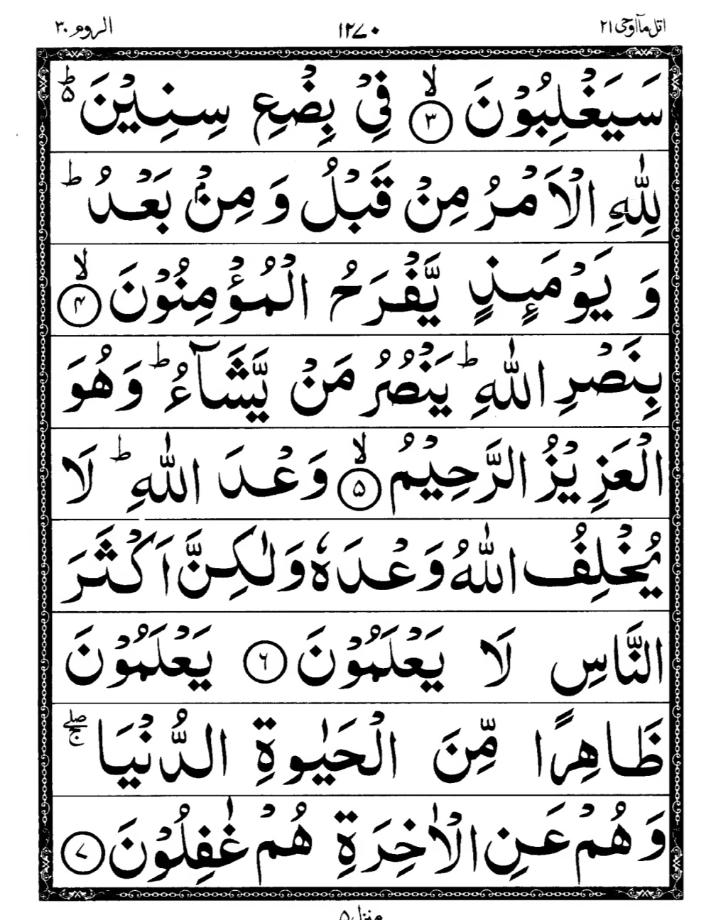 اتل مآ اوحی ۲۱ ۱۲۷۰ الروم ۳۰
سَيَغْلِبُوْنَ ۙ‏﴿۳﴾ فِيْ بِضْعِ سِنِيْنَ ؕ۬
لِلّٰهِ الْاَمْرُ مِنْ قَبْلُ وَ مِنْۢ بَعْدُ ؕ
وَ يَوْمَىِٕذٍ يَّفْرَحُ الْمُؤْمِنُوْنَ ۙ‏﴿۴﴾
بِنَصْرِ اللّٰهِ ؕ يَنْصُرُ مَنْ يَّشَآءُ ؕ وَهُوَ
الْعَزِيْزُ الرَّحِيْمُ ۙ‏﴿۵﴾ وَعْدَ اللّٰهِ ؕ لَا
يُخْلِفُ اللّٰهُ وَعْدَهٗ وَلٰكِنَّ اَكْثَرَ
النَّاسِ لَا يَعْلَمُوْنَ ﴿۶﴾ يَعْلَمُوْنَ
ظَاهِرًا مِّنَ الْحَيٰوةِ الدُّنْيَا ۖۚ
وَهُمْ عَنِ الْاٰخِرَةِ هُمْ غٰفِلُوْنَ ﴿۷﴾
منزل ۵